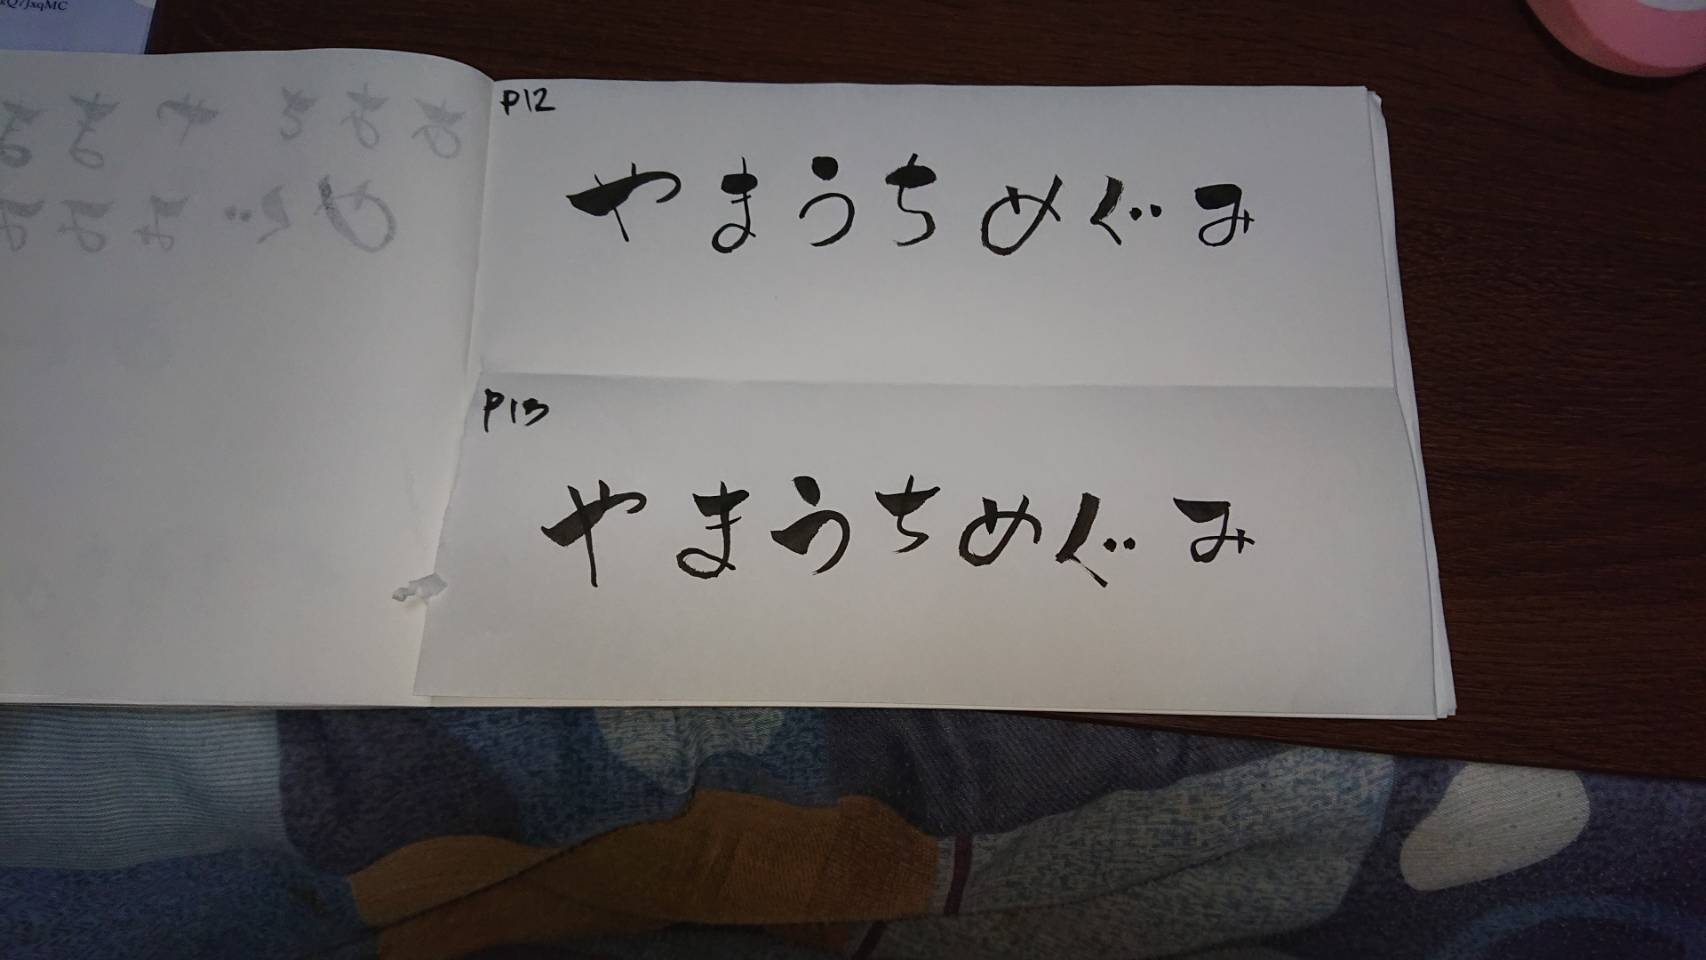 P12
やまうちめぐみ
P13
やまうちめぐみ